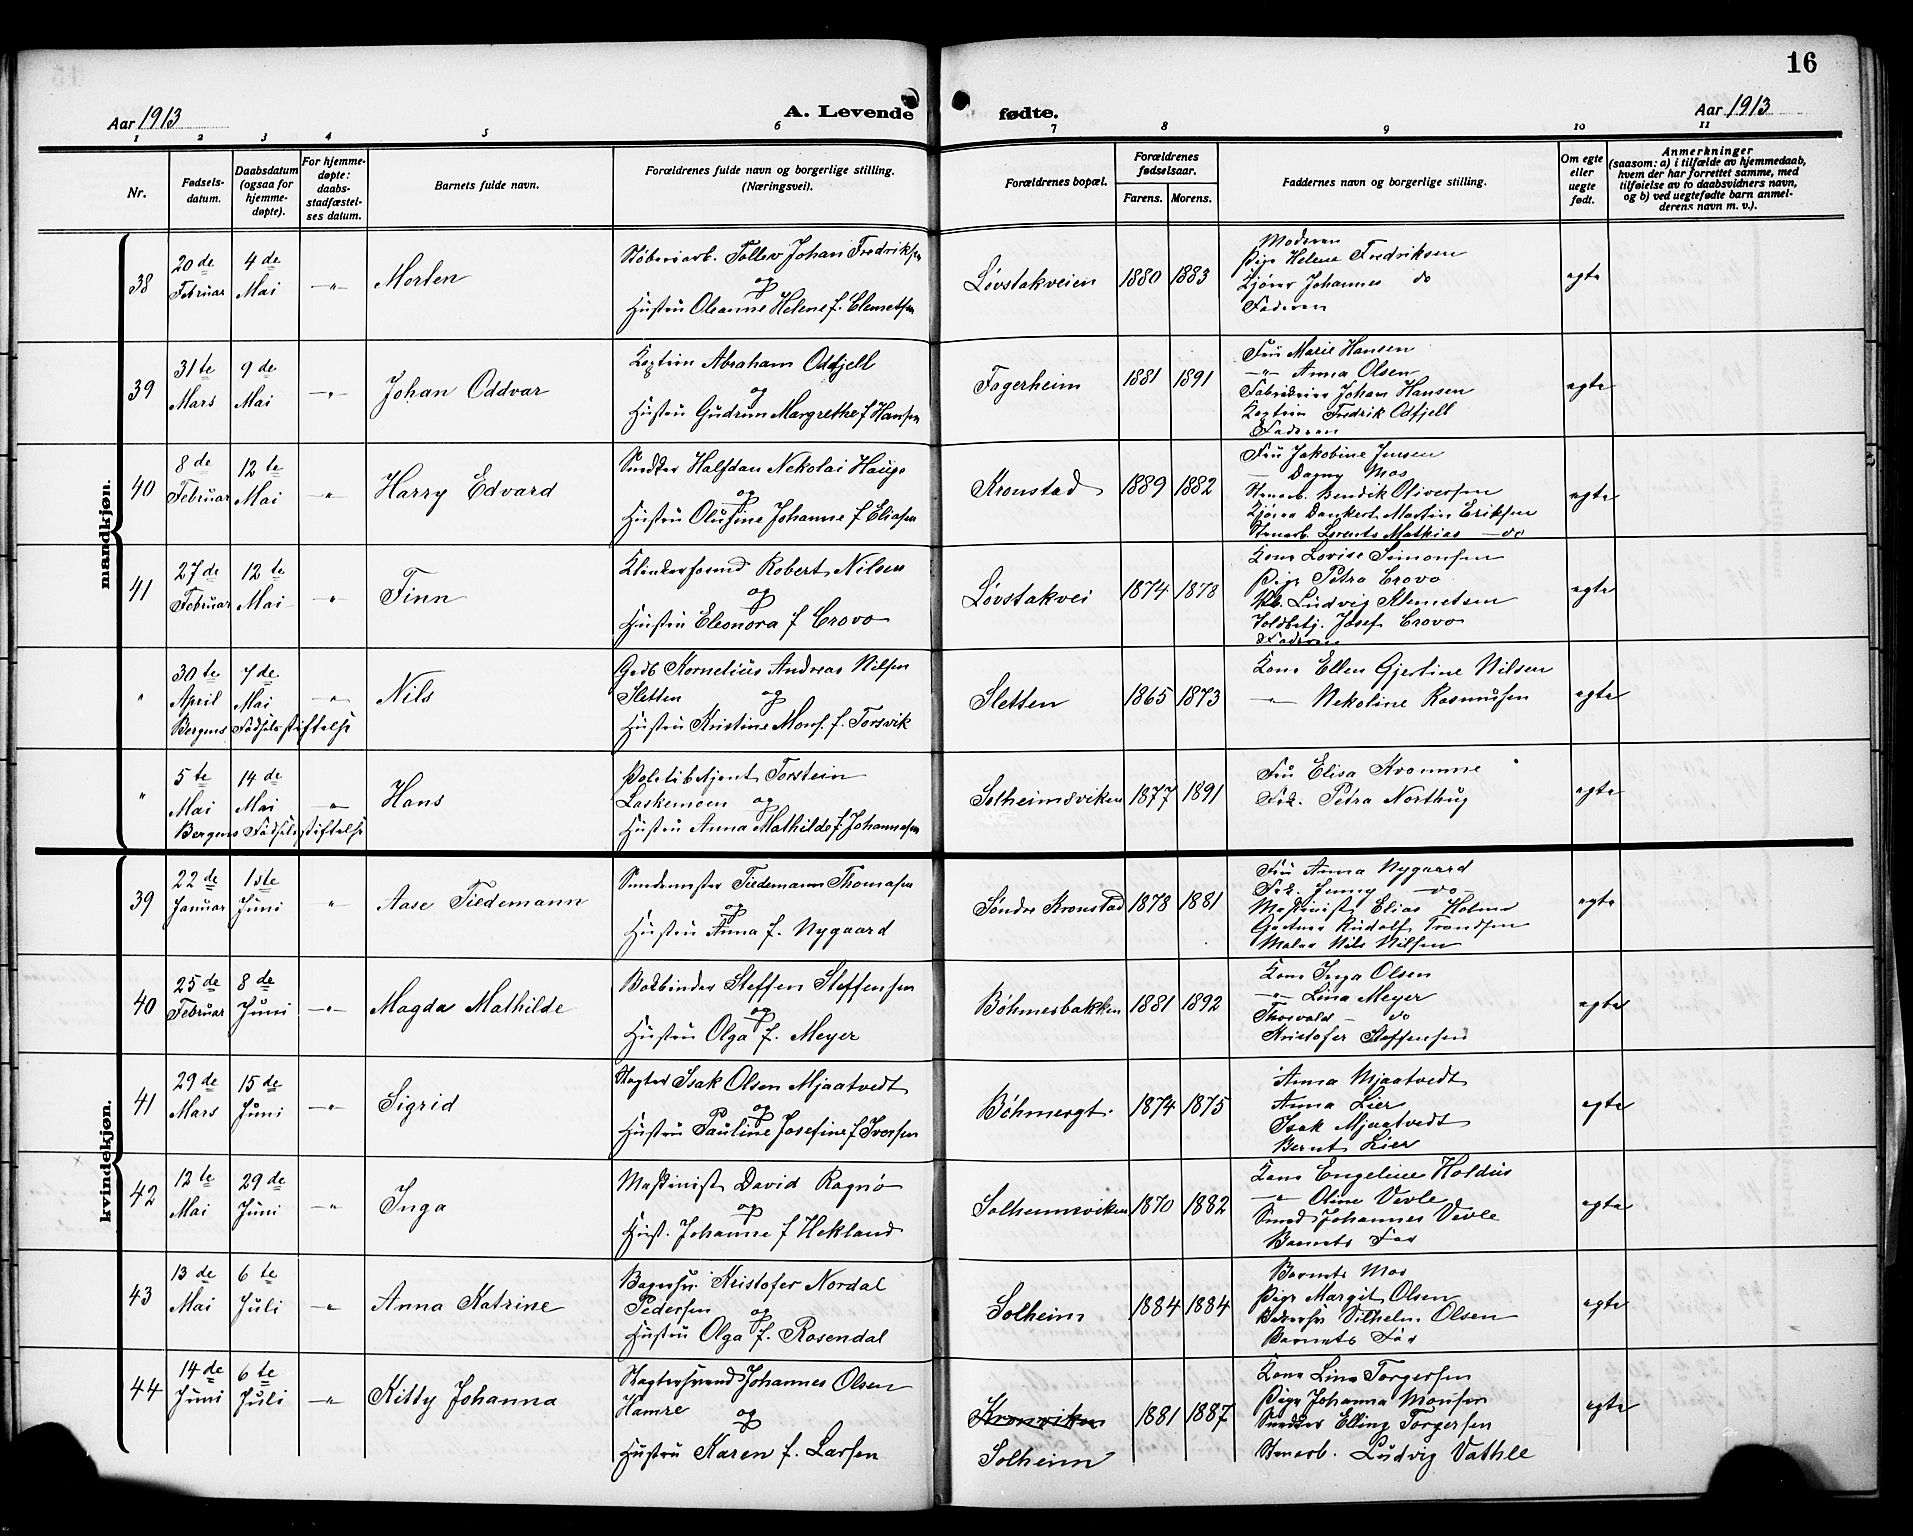 16
Aar 1913
A. Levende fødte.
Aar 1913
1 2 3 4 5 6 7 8 9 10 11
Nr.
Fødsels-
datum.
Daabsdatum
(ogsaa for
hjemme-
døpte).
For hjemme-
døpte:
daabs-
stadfæstel-
ses datum.
Barnets fulde navn.
Forældrenes fulde navn og borgerlige stilling.
(Næringsvei).
Forældrenes bopæl.
Forældrenes
fødselsaar.
Farens. Morens.
Faddernes navn og borgerlige stilling.
Om egte
eller
uegte
født.
Anmerkninger
(saasom: a) i tilfælde av hjemmedaab,
hvem der har forrettet samme, med
tilføielse av to daabsvidners navn,
og b) ved uegtefødte barn anmel-
derens navn m. v.).
mandkjøn.
38
20 de
Februar
4 de
Mai
-"-
Morten
Støberiarb. Tollev Johan Fredriksen
og
Hustru Oleanne Helene f. Clemetsen
Løvstakveien
1880 1883
Moderen
Pige Helene Fredriksen
Kjører Johannes do
Faderen
egte
39
31 te
Mars
9 de
Mai
-"-
Johan Oddvar
Kaptein Abraham Oddfjell
og
Hustru Gudrun Margrethe f Hansen
Fagerheim
1881 1891
Fru Marie Hansen
-"- Anna Olsen
Johan Hansen
Kaptein Fredrik Odfjell
Faderen
egte
40
8 de
Februar
12 te
Mai
"
Harry Edvard
Snedker Halfdan Nekolai Hauge
og
Hustru Olufine Johanne f Eliasen
Kronstad
1889 1882
Fru Jakobine Jensen
— Dagny Mos
Stenarb. Bendik Oliversen
Kjører Dankert Martin Eriksen
Stenarb. Lorents Mathias — do
egte
41
27 de
Februar
12 te
Mai
"
Finn
Klinkerformd Robert Nilsen
og
Hustru Eleonora f Crovo
Løvstakvei
1874 1878
Kone Lovise Simonsen
Pige Petra Crovo
Ludvig Klemetsen
Toldbetj. Josef Crovo
Faderen
egte
"
30 te
April
7 de
Mai
-"-
Bergens Fødselsstiftelse
Nils
Gedb Kornelius Andreas Nilsen
Sletten og
Hustru Kristine Mons. f. Torsvik
Sletten
1865 1873
Kone Ellen Gjertine Nilsen
-"- Nekoline Rasmusen
egte
"
5 te
Mai
14 de
Mai
-"-
Bergens Fødselsstiftelse
Hans
Politibetjent Torstein
Laskemoen og
Hustru Anna Mathilde f. Johannesen
Solheimsviken
1877 1891
Fru Elisa Kromme
Frk. Petra Northug
egte
kvindekjøn.
39
22 de
Januar
1ste
Juni
"
Aase Tiedemann
Tiedemann Thomasen
og
Hustru Anna f. Nygaard
Søndre Kronstad
1878 1881
Fru Anna Nygaard
Frk. Jenny — do —
Maskinist Elias Holme
Gartner Rudolf Trondsen
Maler Nils Nilsen
egte
40
25 de
Februar
8 de
Juni
-"-
Magda Mathilde
Bokbinder Steffen Steffensen
og
Hustru Olga f. Meyer
Bøhmesbakken
1881 1892
Kone Inga Olsen
-"- Lina Meyer
Thorvald — do
Kristofer Steffensen
egte
41
29 de
Mars
15 de
Juni
-"-
Sigrid
Slagter Isak Olsen Mjaatvedt
og
Hustru Pauline Josefine f Iversen
Bøhmergt.
1874 1875
Anna Mjaatvedt
Anna Lier
Isak Mjaatvedt
Bernt Lier
egte
42
12 te
Mai
29 de
Juni
-"-
Inga
Maskinist David Ragnø
og
Hust. Johanne f Hekland
Solheimsviken
1870 1882
Kone Engeline Holdus
-"- Oline Vevle
Smed Johannes Vevle
Barnets Far
egte
43
13 de
Mai
6 te
Juli
-"-
Anna Katrine
Bagersv. Kristofer Nordal
Pedersen og
Hustru Olga f. Rosendal
Solheim
1884 1884
Barnets Mor
Pige Margit Olsen
Vilhelm Olsen
Barnets Far
egte
44
14 de
Juni
6 te
Juli
-"-
Kitty Johanna
Slagtersvend Johannes Olsen
Hamre og
Hustru Karen f. Larsen
Kronviken
Solheim
1881 1887
Kone Lina Torgersen
Pige Johanna Monsen
Snedker Elling Torgersen
Stenarb. Ludvig Vathle
egte